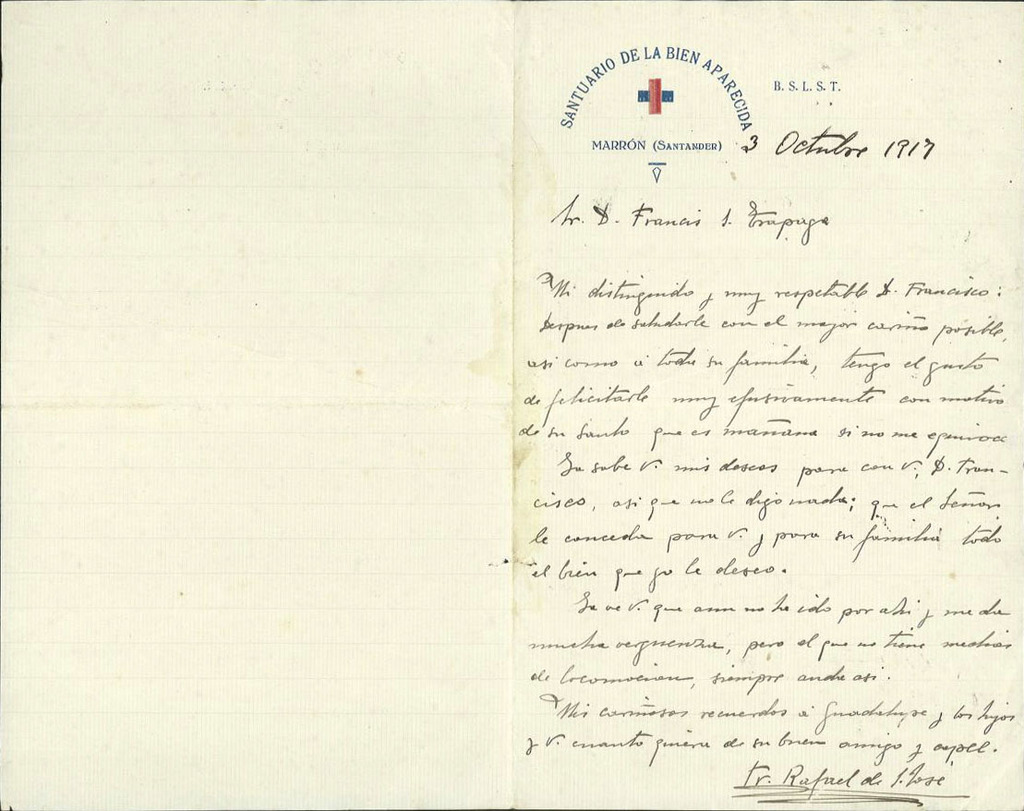 SANTUARIO DE LA BIEN APARECIDA
B. S. L. S. T.
MARRÓN (SANTANDER)
3 Octubre 1917
Sr. D. Francis S. Trapaga
Mi distinguido y muy respetable D. Francisco:
Despues de saludarle con el mayor cariño posible,
asi como á toda su familia, tengo el gusto
de felicitarle muy efusivamente con motivo
de su Santo que es mañana si no me equivoco
Ya sabe V. mis deseos para con V., D. Fran-
cisco, asi que no le digo nada; que el Señor
le conceda para V. y para su familia todo
el bien que yo le deseo.
Ya ve V. que aun no he ido por ahi y me da
mucha verguenza, pero el que no tiene medios
de locomocion, siempre anda asi.
Mis cariñosos recuerdos á Guadalupe y los hijos
y V. cuanto quiera de su buen amigo y capel.
Fr. Rafael de S. José